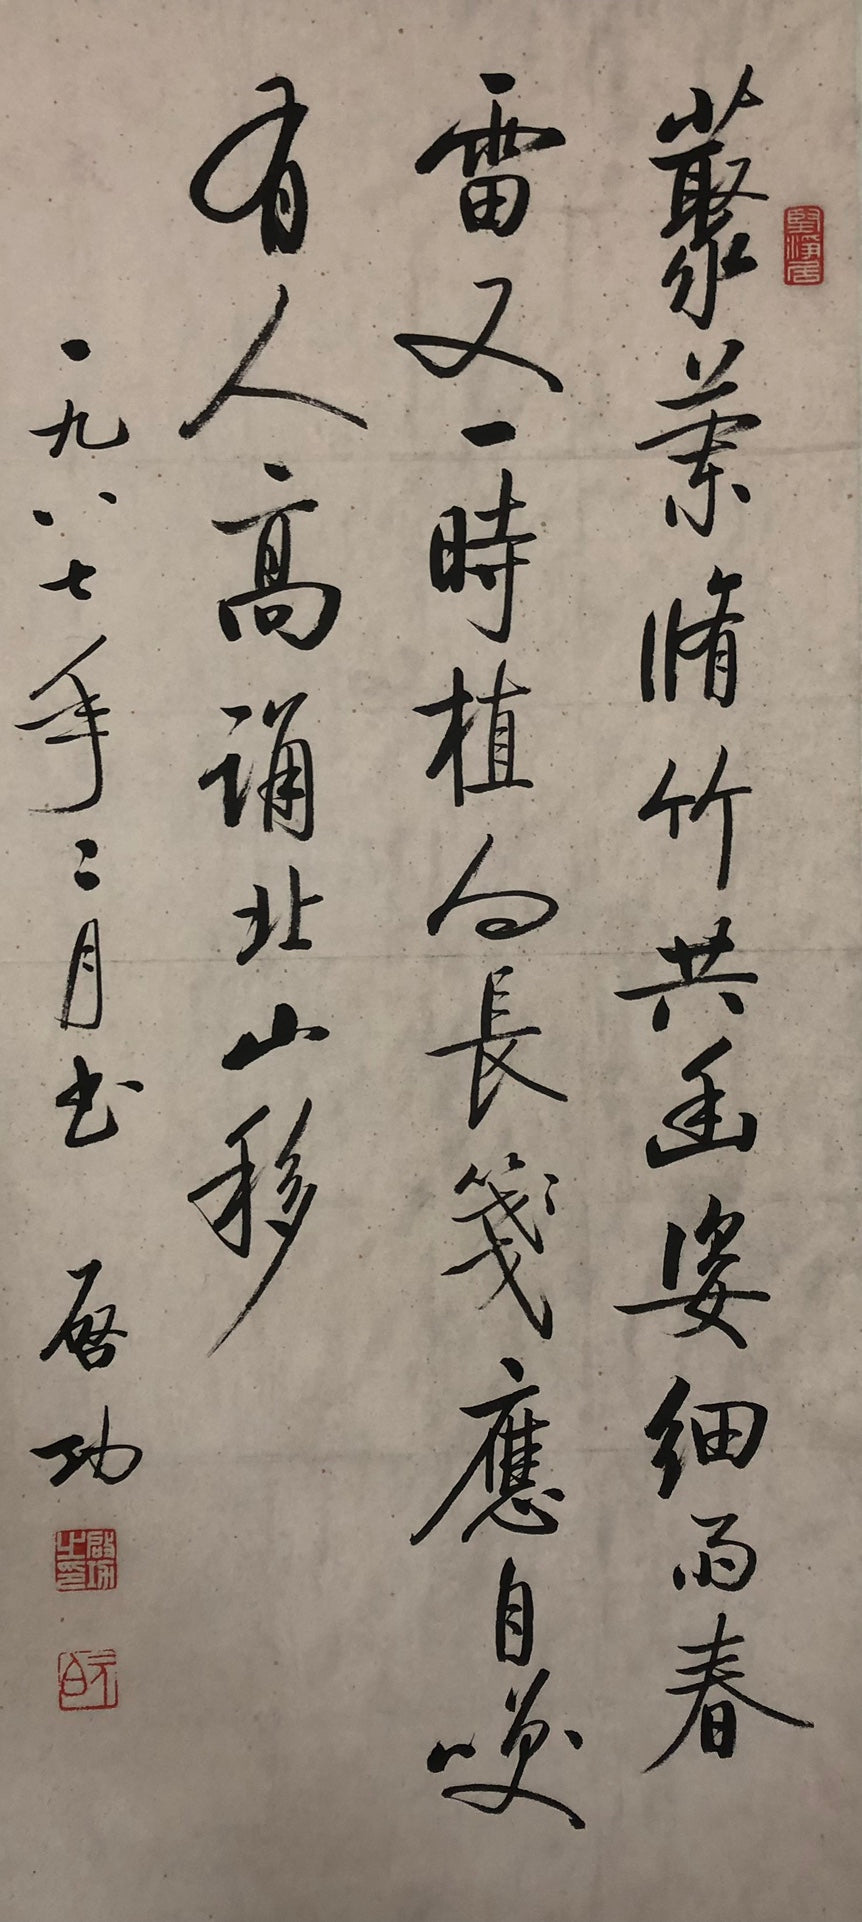 藂蘭脩竹共幽姿細雨春
雷又一時植向長箋應自𠸄
有人高誦北山移
一九八七年二月書 啓功
堅淨居
啟功之印
元白